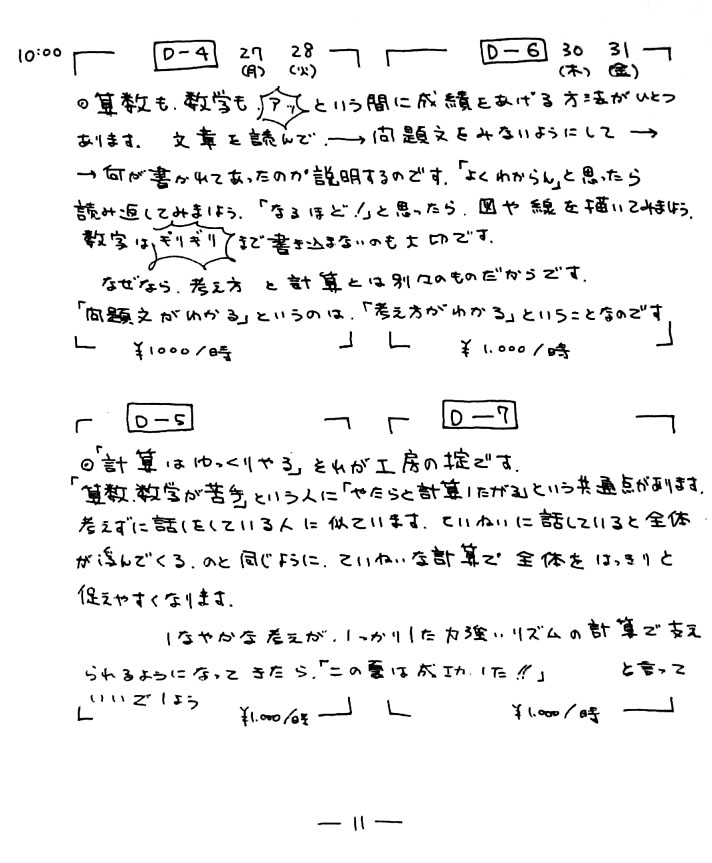 10:00 D-4 27 28 D-6 30 31
(月) (火) (木) (金)
◎算数も、数学もアッという間に成績をあげる方法がひとつ
あります。 文章を読んで、→問題文をみないようにして→
→何が書かれてあったのか説明するのです。「よくわからん」と思ったら
読み返してみましょう。「なるほど!」と思ったら、図や線を描いてみましょう。
数字はギリギリまで書き込まないのも大切です。
なぜなら、考え方と計算とは別々のものだからです。
「問題文がわかる」というのは、「考え方がわかる」ということなのです
¥1000/時 ¥1.000/時
D-5 D-7
◎「計算はゆっくりやる」それが工房の掟です。
「算数、数学が苦手」という人に「やたらと計算したがる」という共通点があります。
考えずに話しをしている人に似ています。ていねいに話していると全体
が浮んでくる、のと同じように、ていねいな計算で全体をはっきりと
促えやすくなります。
しなやかな考えが、しっかりした力強いリズムの計算で支え
られるようになってきたら、「この夏は成功した!!」 と言って
いいでしょう
¥1.000/時 ¥1.000/時
— 11 —